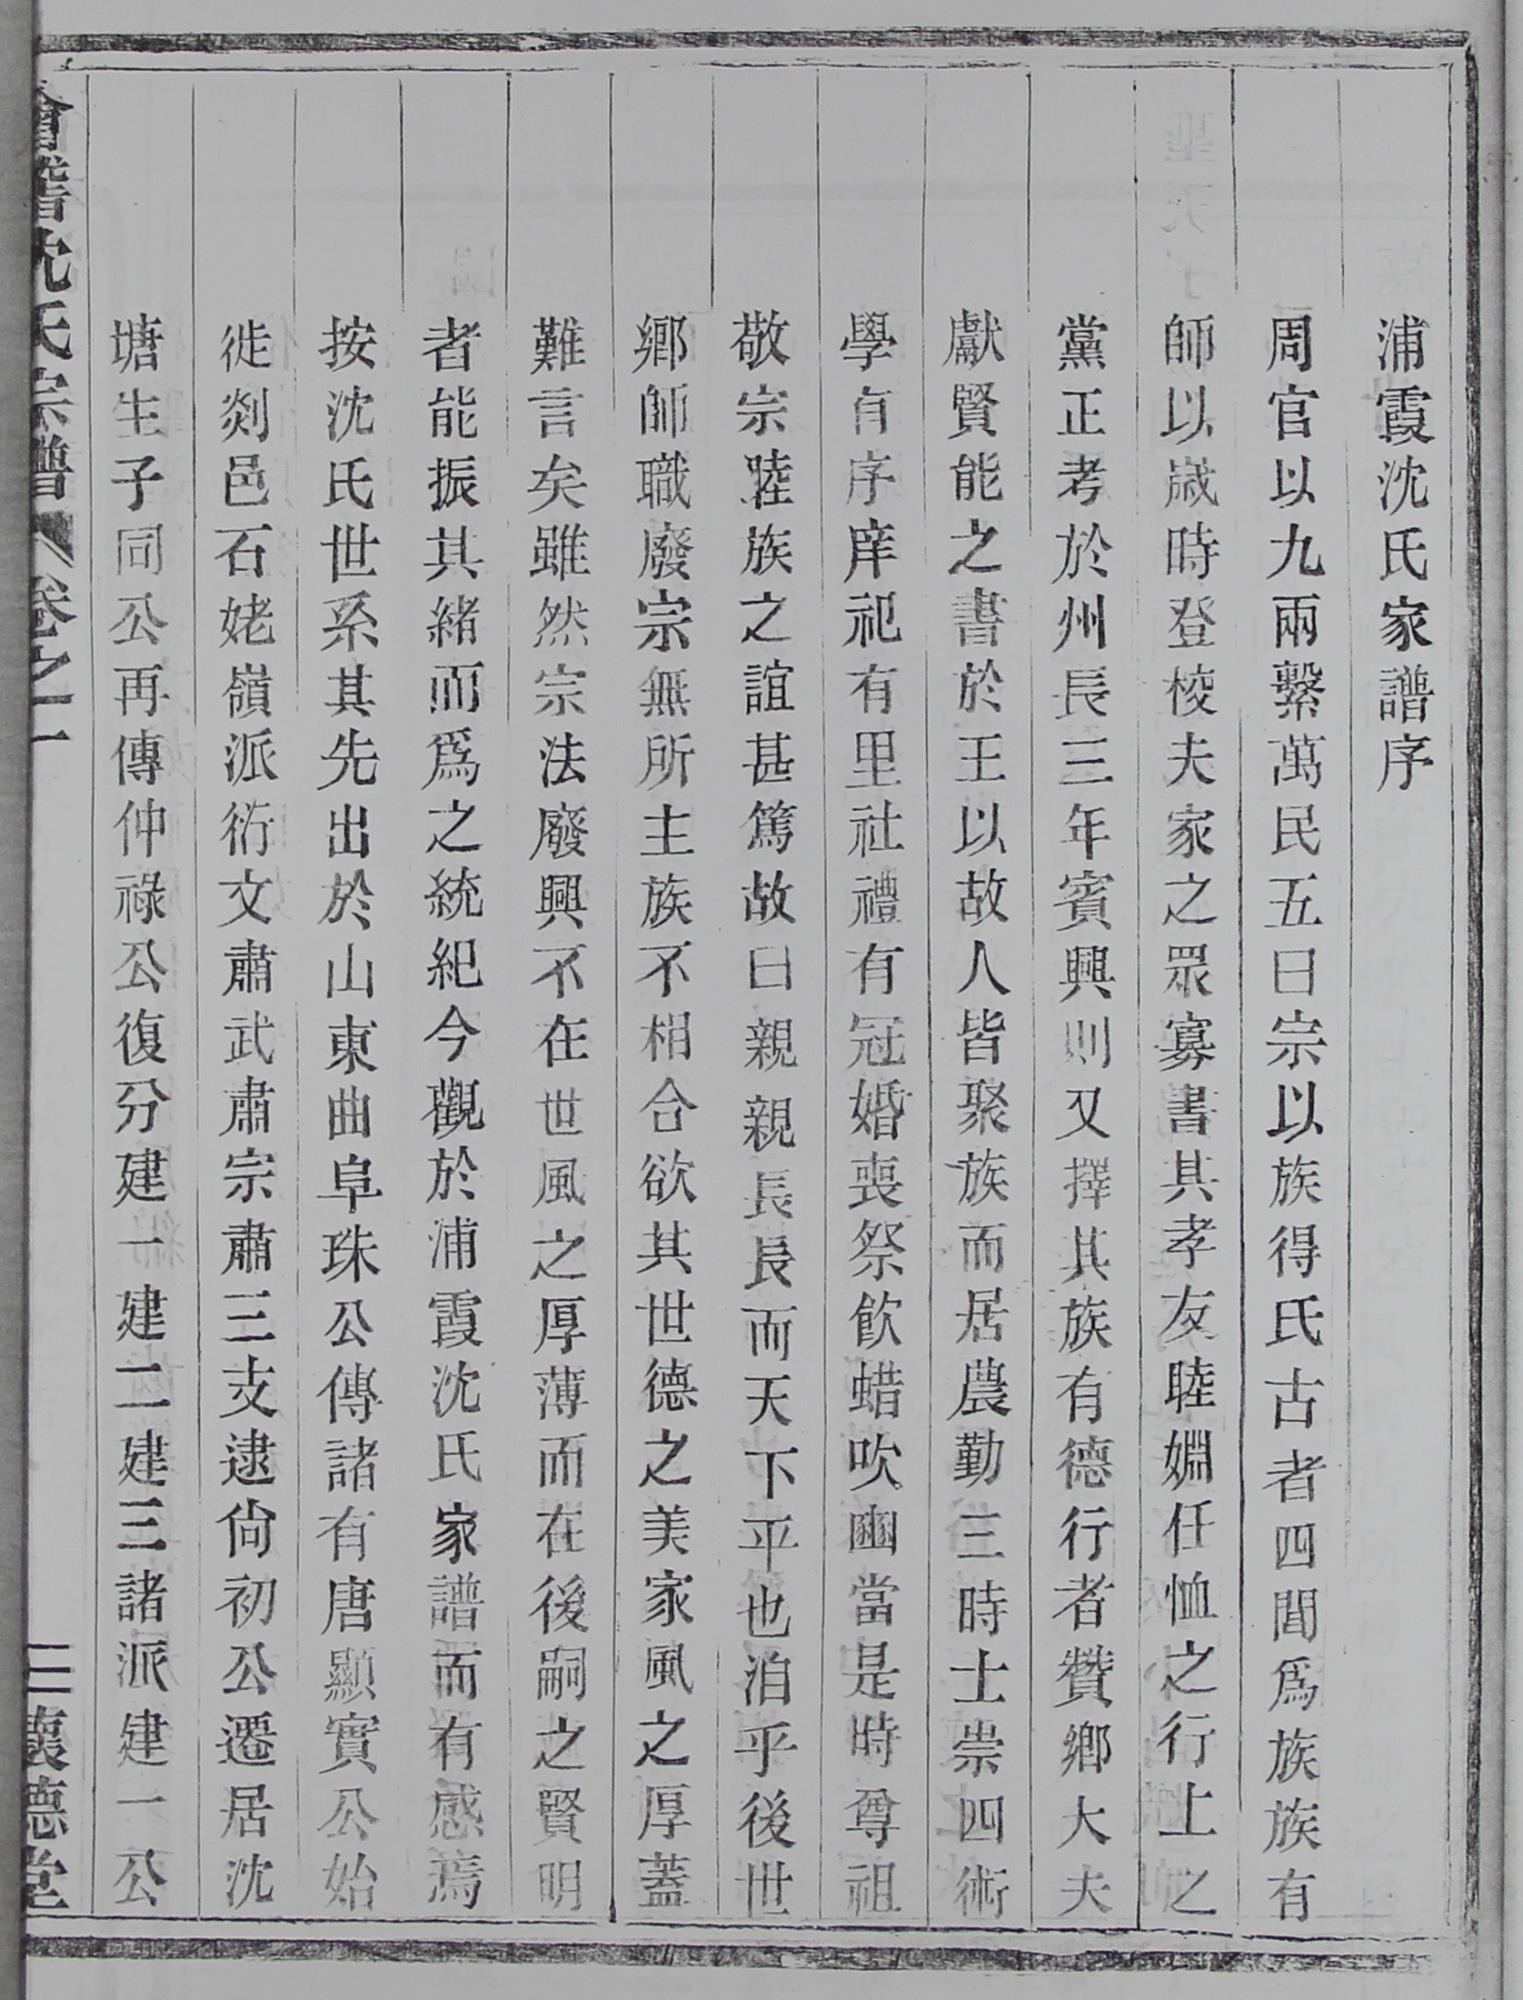 浦霞沈氏家譜序
周官以九兩繫萬民五曰宗以族得氏古者四閭爲族族有
師以歲時登校夫家之眾寡書其孝友睦婣任恤之行上之
黨正考於州長三年賓興則又擇其族有德行者贊鄉大夫
獻賢能之書於王以故人皆聚族而居農勤三時士崇四術
學有序庠祀有里社禮有冠婚喪祭飮蜡吹豳當是時尊祖
敬宗睦族之誼甚篤故曰親親長長而天下平也洎乎後世
鄉師職廢宗無所主族不相合欲其世德之美家風之厚蓋
難言矣雖然宗法廢興不在世風之厚薄而在後嗣之賢明
者能振其緒而爲之統紀今觀於浦霞沈氏家譜而有感焉
按沈氏世系其先出於山東曲阜珠公傳諸有唐顯實公始
徙剡邑石姥嶺派衍文肅武肅宗肅三支逮尙初公遷居沈
塘生子同公再傳仲祿公復分建一建二建三諸派建一公
會稽沈氏宗譜 卷之一 三 懷德堂